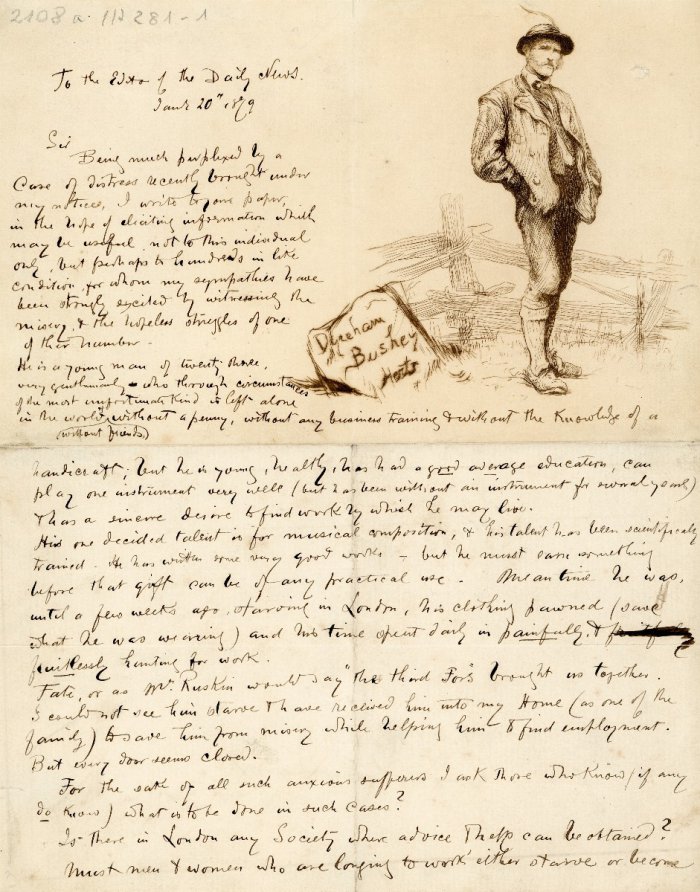 2108 a 117 281-1
To the Editor of the Daily News.
Jany 20th 1879
Sir
Being much perplexed by a
Case of distress recently brought under
my notice, I write to your paper,
in the hope of eliciting information which
may be useful, not to this individual
only, but perhaps to hundreds in like
condition, for whom my sympathies have
been strongly excited by witnessing the
misery, & the hopeless struggles of one
of their number.
He is a young man of twenty three,
very gentlemanly - who through circumstances
of the most unfortunate kind is left alone
in the world, without a penny, without any business training & without the Knowledge of a
(without friends)
Direham
Bushey
Herts
handicraft, but he is young, healthy, has had a good average education, can
play one instrument very well (but has been without an instrument for several years)
& has a sincere desire to find work by which he may live.
His one decided talent is for musical composition, & his talent has been scientifically
trained. He has written some very good works - but he must earn something
before that gift can be of any practical use. Meantime he was,
until a few weeks ago, starving in London, his clothing pawned (save
what he was wearing) and his time spent daily in painfully, &
fruitlessly hunting for work.
Fate, or as Mr. Ruskin would say "the third Fors" brought us together.
I could not see him starve & have received him into my Home (as one of the
family) to save him from misery while helping him to find employment.
But every door seems closed.
For the sake of all such anxious sufferers I ask those who Know (if any
do Know) what is to be done in such cases?
Is there in London any Society where advice & help can be obtained?
Must men & women who are longing to work either starve or become